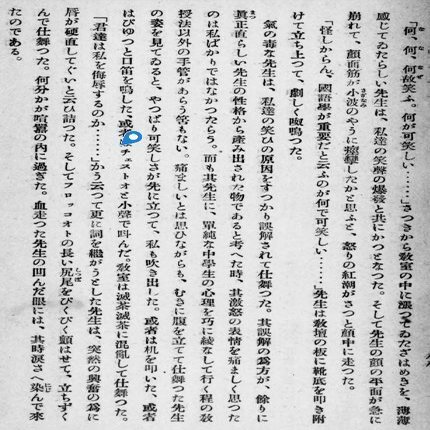 「何、何、何故笑ふ。何が可笑しい……」さつきから教室の中に漲つてゐたざはめきを、薄薄
感じてゐたらしい先生は、私達の笑聲の爆發と共にかつとなつた。そして先生の顏の平面が急に
崩れて、顏面筋が小波のやうに痙攣したかと思ふと、怒りの紅潮がさつと顏中に走つた。
「怪しからん、國語學が重要だと云ふのが何で可笑しい……」先生は敎壇の板に靴底を叩き附
けて立ち上つて、劇しく呶鳴つた。
氣の毒な先生は、私達の笑ひの原因をすつかり誤解されて仕舞つた。其誤解の爲方が、餘りに
眞正直らしい先生の性格から產み出された物であると考へた時、其激怒の表情を痛ましく思つた
のは私ばかりではなかつたらう。而も其先生に、單純な中學生の心理を巧に綾なして行く程の敎
授法以外の手管があらう筈もない。痛ましいとは思ひながらも、むきに腹を立てて仕舞つた先生
の姿を見てゐると、やつぱり可笑しさが先に立つて、私も吹き出した。或者は机を叩いた、或者
はぴゆつと口笛を鳴した、或者チエストオと小聲で叫んだ。敎室は滅茶滅茶に混亂して仕舞つた。
「君達は私を侮辱するのか……」かう云つて更に詞を繼がうとした先生は、突然の興奮の爲に
脣が硬直してぐいと云ひ詰つた。そしてフロツコオトの長い尻尾をぴくぴく顫はせて、立ちすく
んで仕舞つた。何分かが喧囂の內に過ぎた。血走つた先生の凹んだ眼には、其時淚さへ染んで來
たのである。